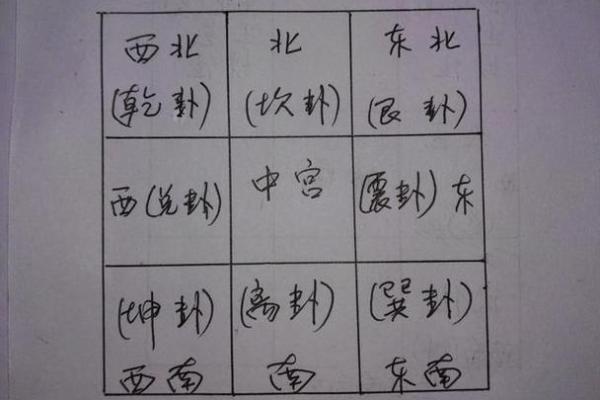 西北
(乾卦)
北
(坎卦)
东北
(艮卦)
西(兑卦)
中宫
(震卦)东
(坤卦)
西南
(离卦)
南
(巽卦)
东南